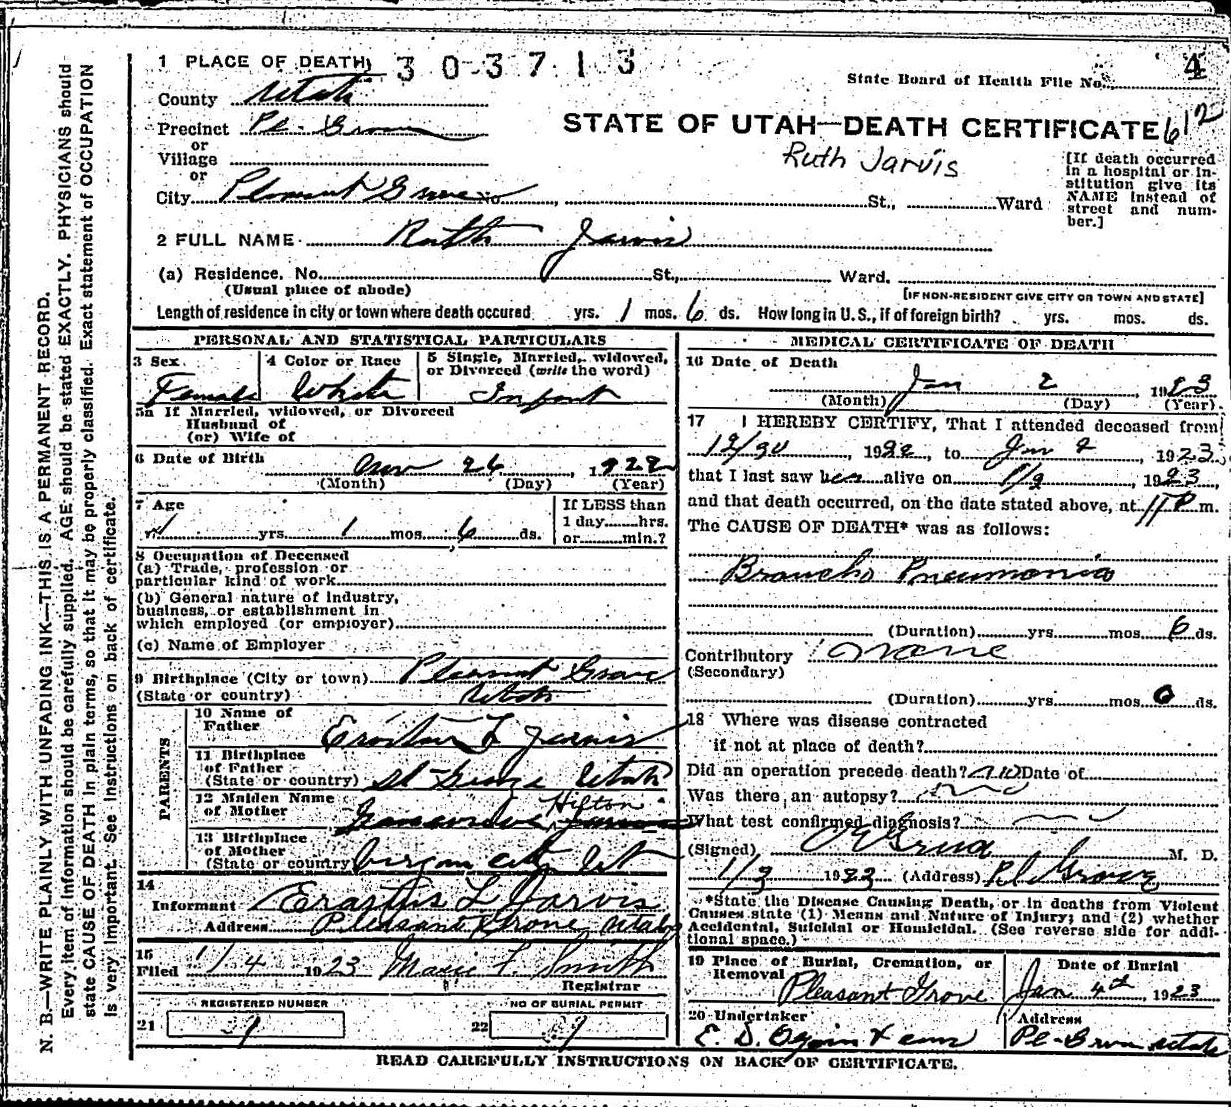 1 PLACE OF DEATH 303713
State Board of Health File No. 4
County Utah
Precinct Pl. Grove
STATE OF UTAH—DEATH CERTIFICATE 612
or
Village
Ruth Jarvis
or
City Pleasant Grove No. St., Ward
[If death occurred
in a hospital or in-
stitution give its
NAME instead of
street and num-
ber.]
2 FULL NAME Ruth Jarvis
(a) Residence. No. St., Ward.
(Usual place of abode)
[IF NON-RESIDENT GIVE CITY OR TOWN AND STATE]
Length of residence in city or town where death occured yrs. 1 mos. 6 ds. How long in U. S., if of foreign birth? yrs. mos. ds.
PERSONAL AND STATISTICAL PARTICULARS
3 Sex 4 Color or Race 5 Single, Married, widowed,
or Divorced (write the word)
Female White Infant
5a If Married, widowed, or Divorced
Husband of
(or) Wife of
6 Date of Birth 26, 1922
(Month) (Day) (Year)
7 Age If LESS than
1 day hrs.
yrs. 1 mos. 6 ds. or min.?
8 Occupation of Deceased
(a) Trade, profession or
particular kind of work
(b) General nature of industry,
business, or establishment in
which employed (or employer)
(c) Name of Employer
9 Birthplace (City or town) Pleasant Grove
(State or country) Utah
PARENTS
10 Name of
Father Erastus L Jarvis
11 Birthplace
of Father
(State or country) St George Utah
12 Maiden Name Hilton
of Mother
13 Birthplace
of Mother
(State or country) Virgin City Ut
14
Informant Erastus L Jarvis
Address Pleasant Grove Utah
15
Filed 1/4 1923 Marie F. Smith
Registrar
REGISTERED NUMBER NO OF BURIAL PERMIT
21 22
MEDICAL CERTIFICATE OF DEATH
16 Date of Death
Jan 2 1923
(Month) (Day) (Year)
17 I HEREBY CERTIFY, That I attended deceased from
12/30, 1922, to Jan 2, 1923,
that I last saw her alive on 1/2, 1923
and that death occurred, on the date stated above, at 11 P m.
The CAUSE OF DEATH* was as follows:
Broncho Pneumonia
(Duration) yrs. mos. 6 ds.
Contributory None
(Secondary)
(Duration) yrs. mos. 0 ds.
18 Where was disease contracted
if not at place of death?
Did an operation precede death? no Date of
Was there an autopsy? no
What test confirmed diagnosis?
(Signed) M. D.
1/3 1923 (Address) Pl Grove
*State the Disease Causing Death, or in deaths from Violent
Causes state (1) Means and Nature of Injury; and (2) whether
Accidental, Suicidal or Homicidal. (See reverse side for addi-
tional space.)
19 Place of Burial, Cremation, or Date of Burial
Removal
Pleasant Grove Jan 4th, 1923
20 Undertaker Address
E. D. Pl. Grove Utah
READ CAREFULLY INSTRUCTIONS ON BACK OF CERTIFICATE.
N. B.—WRITE PLAINLY WITH UNFADING INK—THIS IS A PERMANENT RECORD.
Every item of information should be carefully supplied. AGE should be stated EXACTLY. PHYSICIANS should
state CAUSE OF DEATH in plain terms, so that it may be properly classified. Exact statement of OCCUPATION
is very important. See instructions on back of certificate.